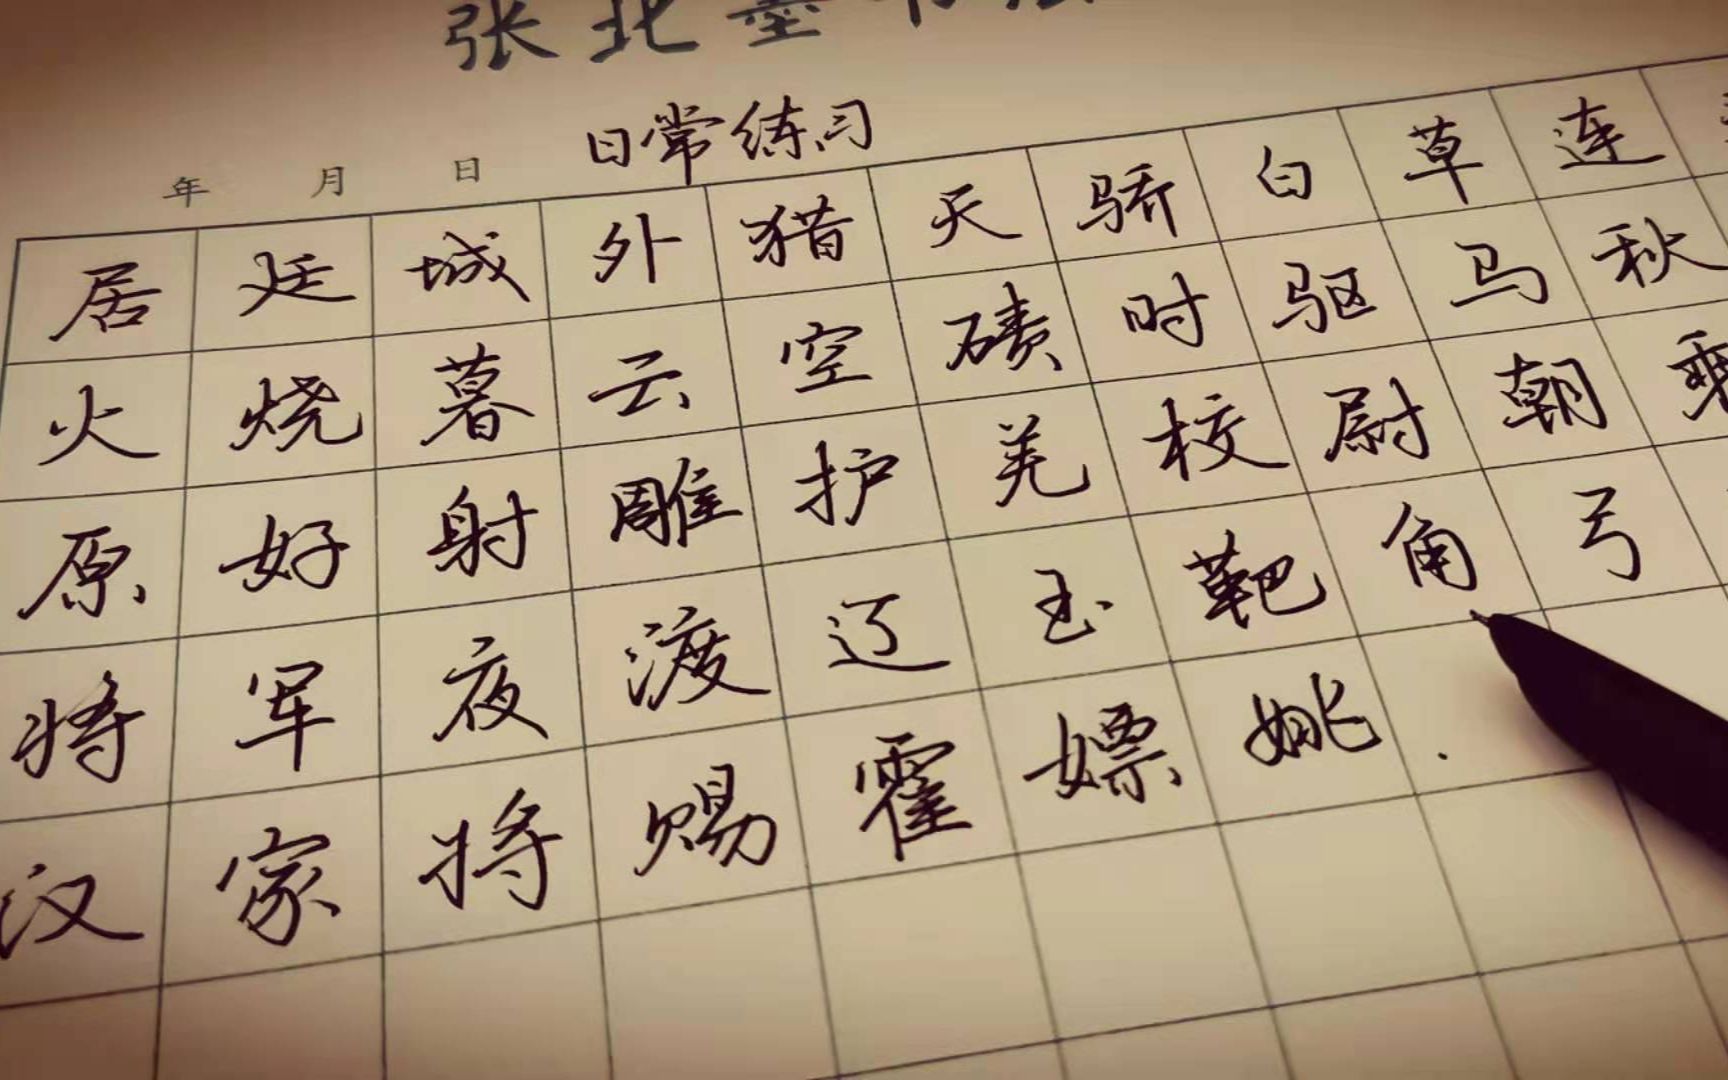 张北墨书法
年 月 日 日常练习
居廷城外猎天骄白草连
火烧暮云空碛时驱马秋
原好射雕护羌校尉朝乘
将军夜渡辽玉靶角弓
汉家将赐霍嫖姚.